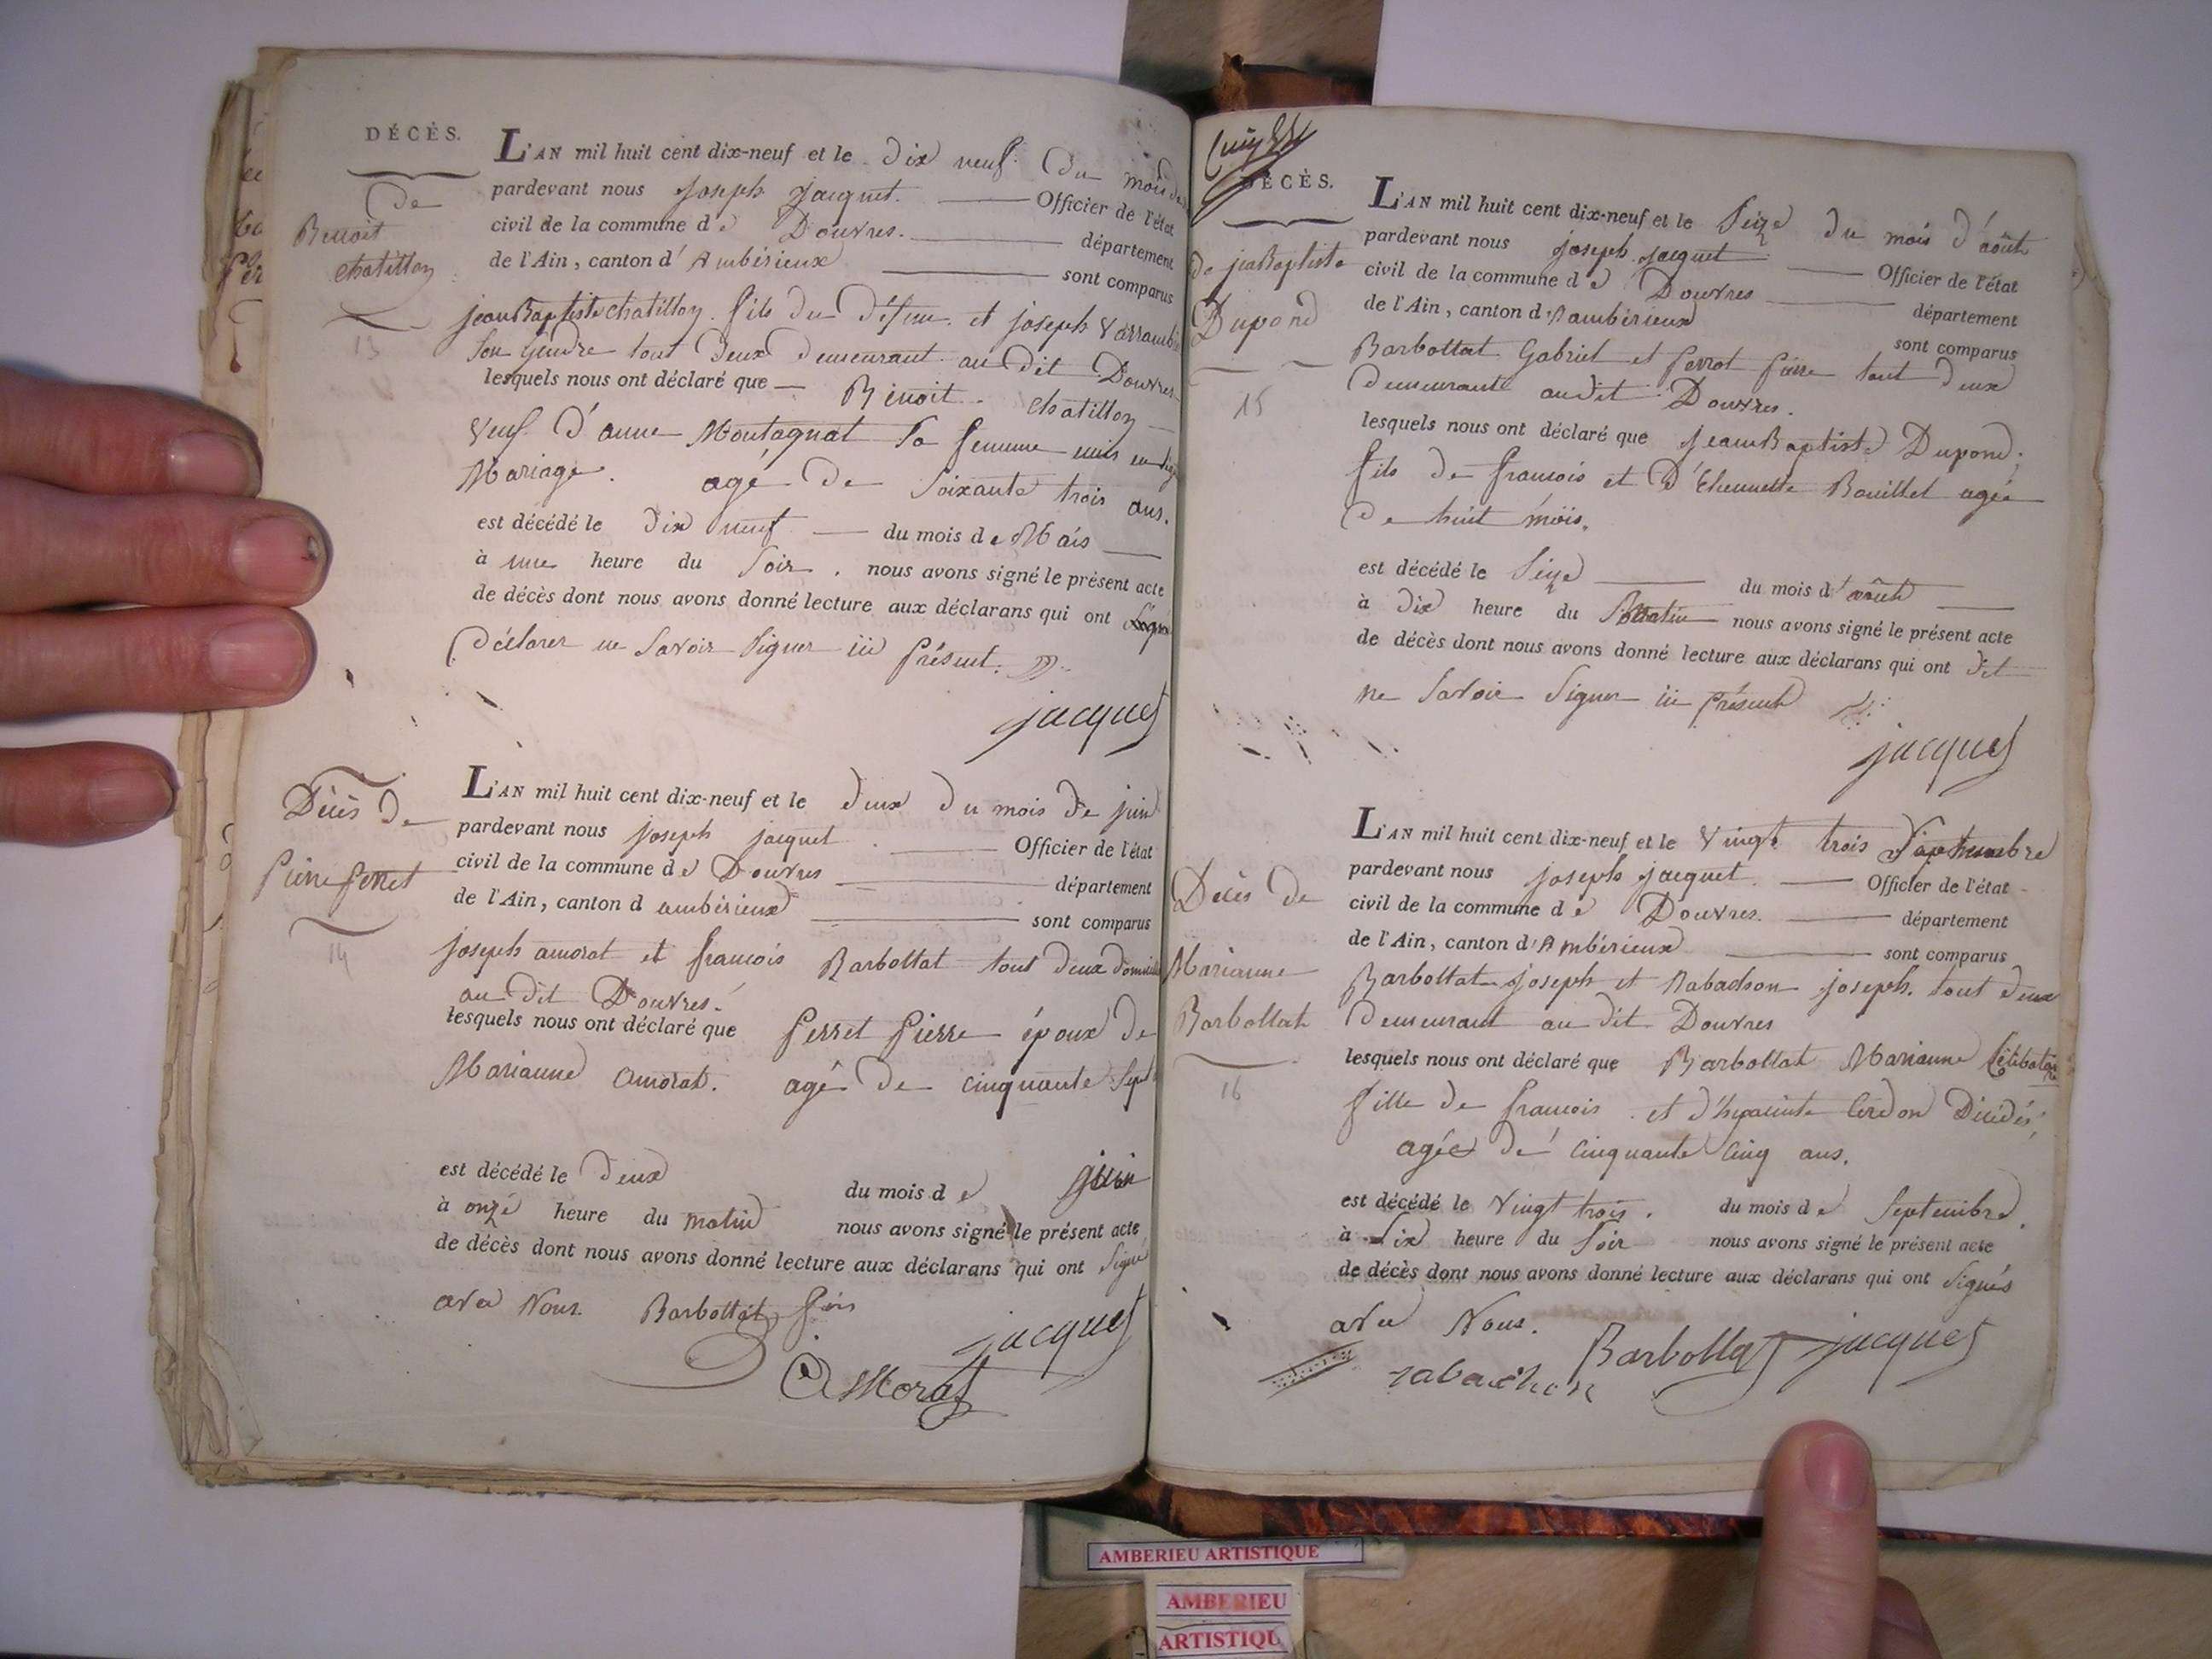 DÉCÈS.
de
Benoit
chatillon
13
L'AN mil huit cent dix-neuf et le dix neuf du mois de
pardevant nous joseph jacquet. Officier de l'état
civil de la commune de Douvres. département
de l'Ain, canton d'Ambérieux sont comparus
jean Baptiste chatillon fils du défunt et joseph Varrambon
son gendre tout deux demeurant au dit Douvres
lesquels nous ont déclaré que Benoit chatillon
veuf d'anne Montagnat sa femme unis en
Mariage. agé de soixante trois ans.
est décédé le dix neuf du mois de Mais
à une heure du soir, nous avons signé le présent acte
de décès dont nous avons donné lecture aux déclarans qui ont
déclarer ne savoir signer ici présent.
jacquet
Décès de
Pierre Perret
14
L'AN mil huit cent dix-neuf et le deux du mois de juin
pardevant nous joseph jacquet Officier de l'état
civil de la commune de Douvres département
de l'Ain, canton d ambérieux sont comparus
joseph amorat et francois Barbottat tout deux
au dit Douvres.
lesquels nous ont déclaré que Perret Pierre époux de
Marianne amorat. agé de cinquante sept
est décédé le deux du mois de juin
à onze heure du matin nous avons signé le présent acte
de décès dont nous avons donné lecture aux déclarans qui ont signé
avec Nous. Barbottat
jacquet
Amorat
DÉCÈS.
de jean Baptiste
Dupond
15
L'AN mil huit cent dix-neuf et le seize du mois d'août
pardevant nous joseph jacquet Officier de l'état
civil de la commune de Douvres département
de l'Ain, canton d'ambérieux sont comparus
Barbottat Gabriel et Perrot Pierre tout deux
demeurant audit Douvres.
lesquels nous ont déclaré que jean Baptiste Dupond;
fils de francois et d'Etiennette Bouillet agée
de huit mois.
est décédé le seize du mois d'août
à dix heure du Matin nous avons signé le présent acte
de décès dont nous avons donné lecture aux déclarans qui ont dit
ne savoir signer ici présent
jacquet
Décès de
Marianne
Barbottat
16
L'AN mil huit cent dix-neuf et le vingt trois Septembre
pardevant nous joseph jacquet. Officier de l'état
civil de la commune de Douvres. département
de l'Ain, canton d'Ambérieux sont comparus
Barbottat joseph et Rabachon joseph. tout deux
demeurant au dit Douvres
lesquels nous ont déclaré que Barbottat Marianne Célibataire
fille de francois et d'hyacinte Cerdon Décédés,
agée de cinquante cinq ans.
est décédé le vingt trois. du mois de Septembre.
à six heure du soir nous avons signé le présent acte
de décès dont nous avons donné lecture aux déclarans qui ont signés
avec Nous.
rabachon Barbottat jacquet
AMBERIEU ARTISTIQUE
AMBERIEU
ARTISTIQU